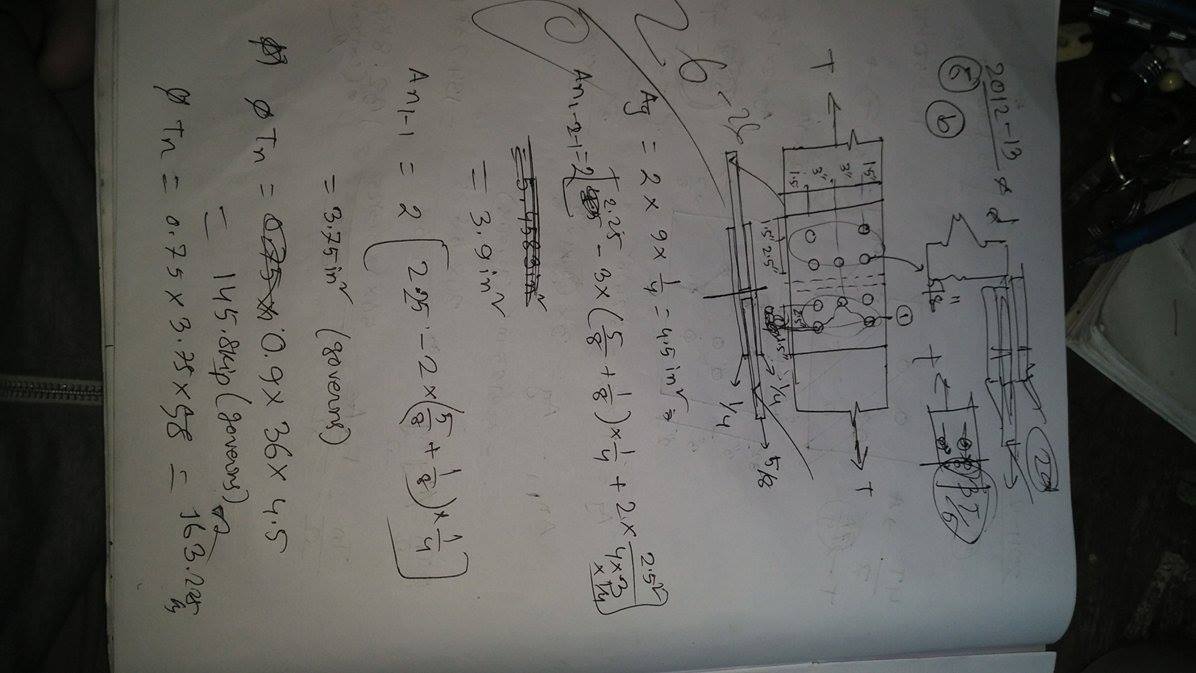 2012-13
5 b
5/8"
T
T
1.5" 3" 3" 1.5"
1.5" 2.5"
1
1/4
1/4
5/8
Ag = 2 × 9 × 1/4 = 4.5 in²
An1-2-1 = 2[2.25 - 3×(5/8 + 1/8)×1/4 + 2× 2.5²/4×3 × 1/4]
= 3.9 in²
An1-1 = 2[2.25 - 2×(5/8 + 1/8)×1/4]
= 3.75 in² (governs)
φTn = 0.9 × 36 × 4.5
= 145.8 kip (governs)
φTn = 0.75 × 3.75 × 58 = 163.125